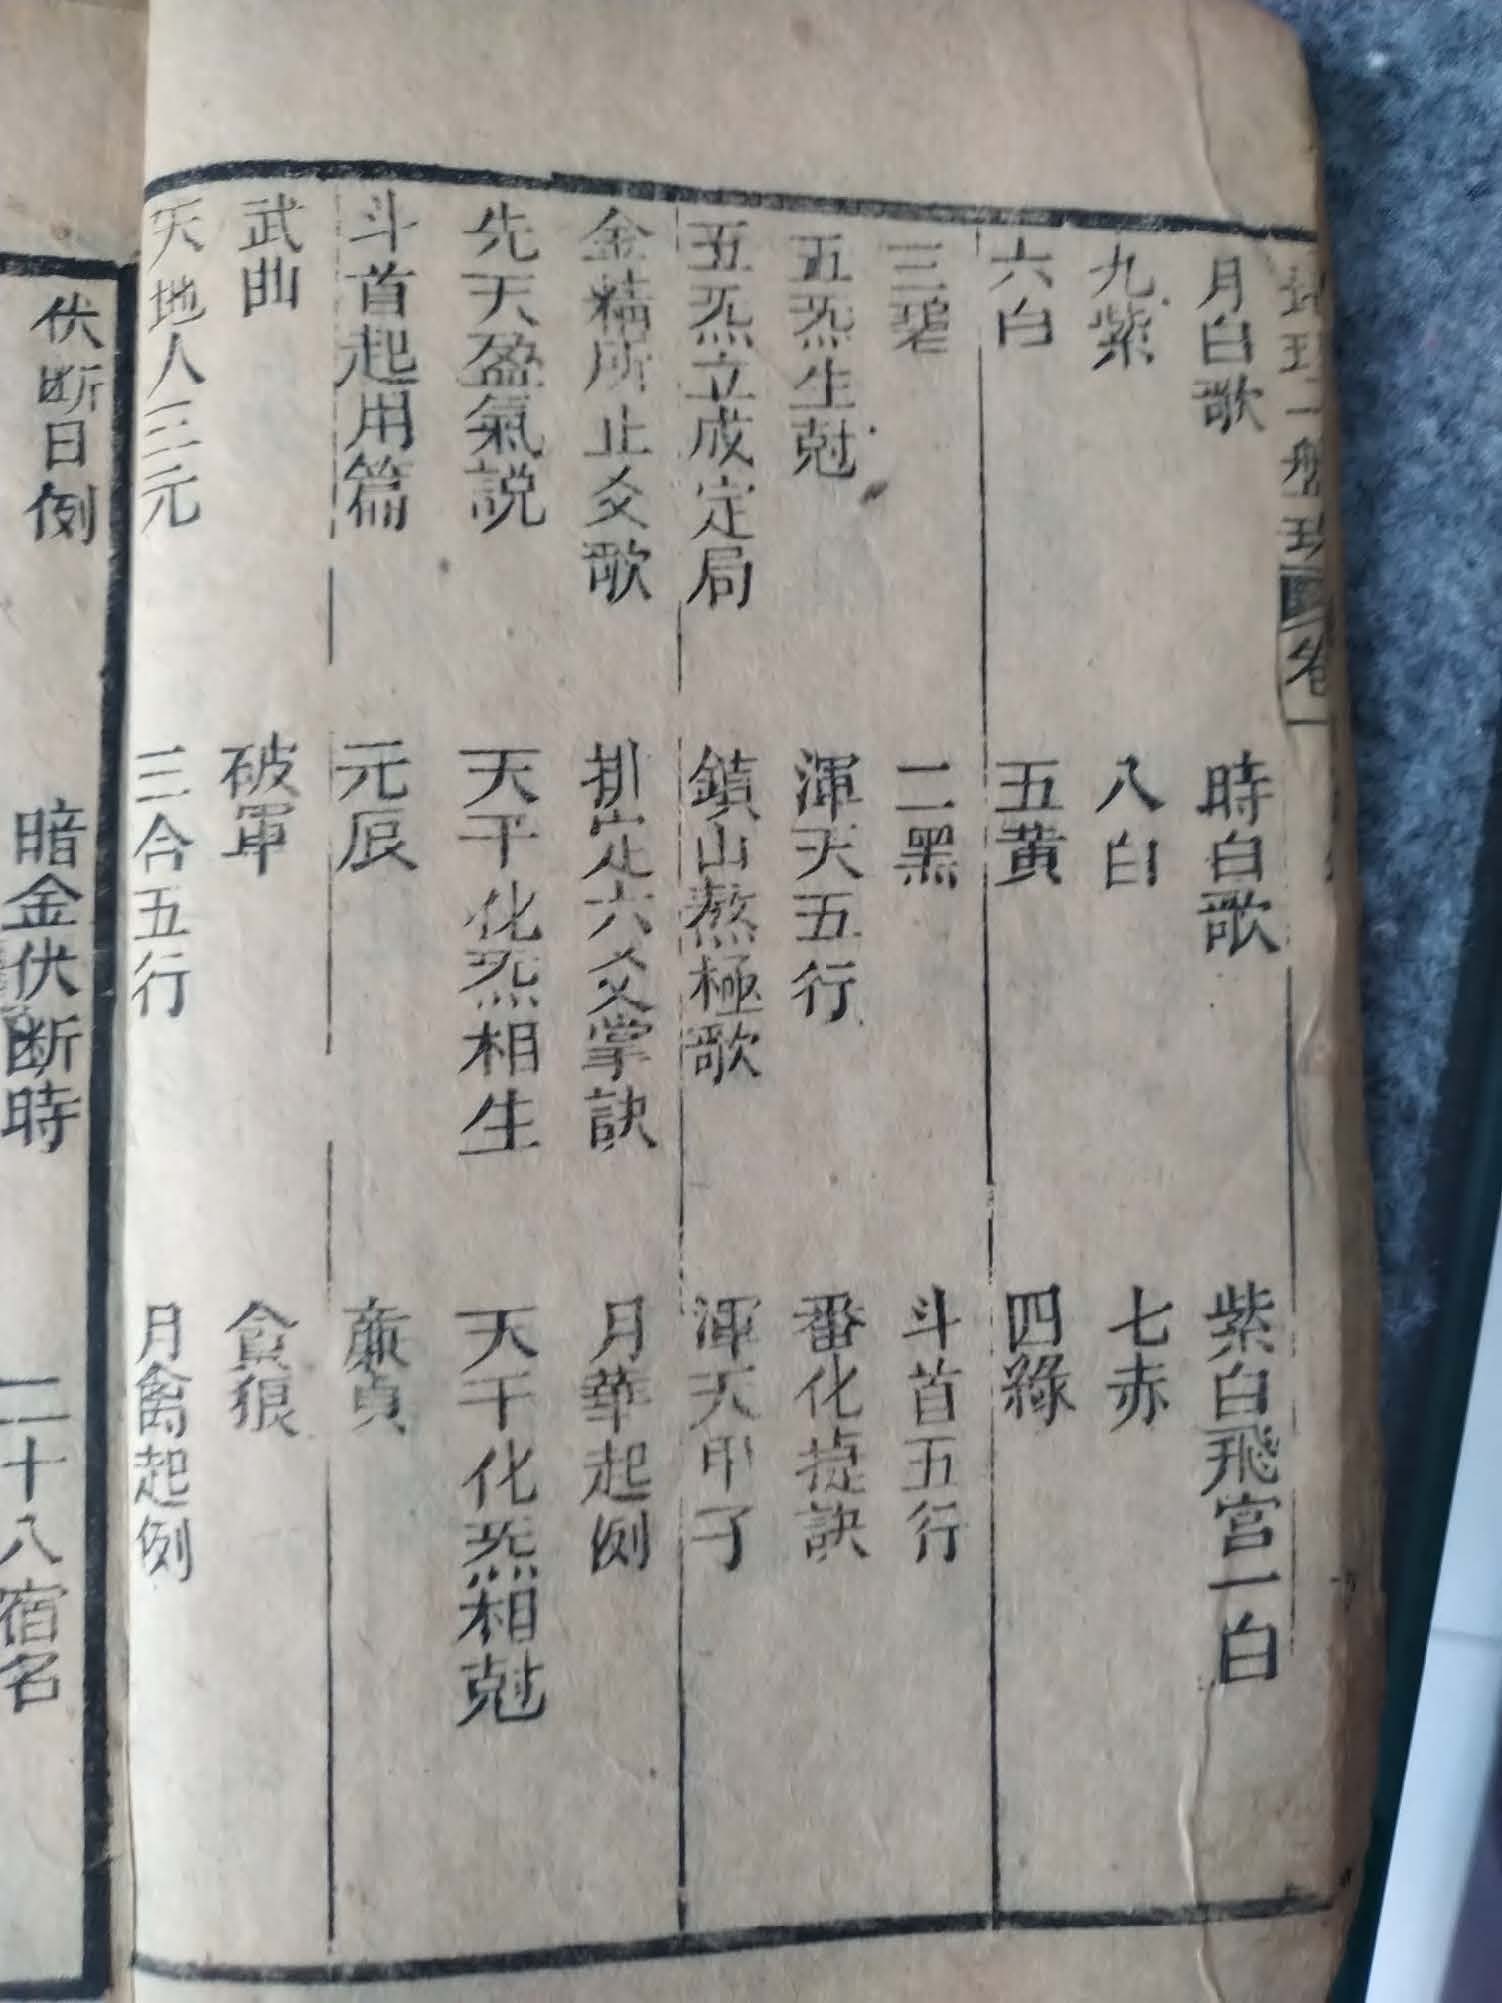 月白歌 時白歌 紫白飛宮一白
九紫 八白 七赤
六白 五黃 四綠
三碧 二黑 斗首五行
五炁生尅 渾天五行 番化捷訣
五炁立成定局 鎮山熬極歌 渾天甲子
金精所止爻歌 排定六爻掌訣 月華起例
先天盈氣説 天干化炁相生 天干化炁相尅
斗首起用篇 元辰 廉貞
武曲 破軍 貪狼
天地人三元 三合五行 月禽起例
伏断日例 暗金伏断時 二十八宿名